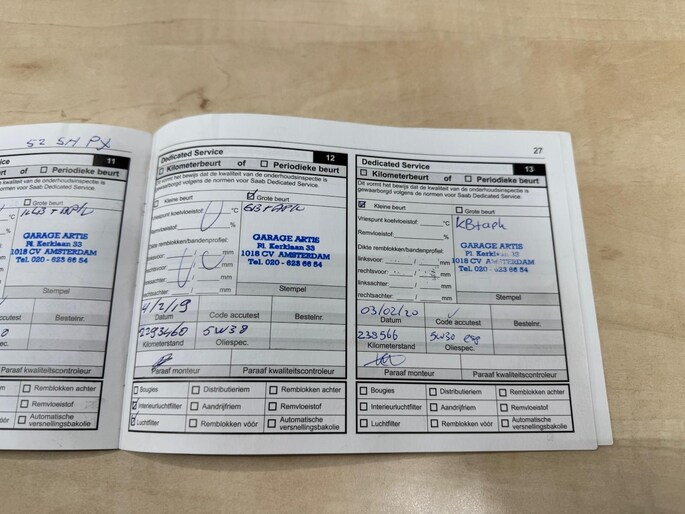 52 SH PX
27
ice
11
of
Periodieke beurt
kwaliteit van de onderhoudsinspectie is
normen voor Saab Dedicated Service.
Grote beurt
GARAGE ARTIS
Pl. Kerklaan 33
1018 CV AMSTERDAM
Tel. 020 - 623 66 54
Stempel
accutest
Bestelnr.
Paraaf kwaliteitscontroleur
Remblokken achter
Remvloeistof
vóór
Automatische
versnellingsbakolie
Dedicated Service
12
Kilometerbeurt of
Periodieke beurt
Dit vormt het bewijs dat de kwaliteit van de onderhoudsinspectie is
gewaarborgd volgens de normen voor Saab Dedicated Service.
Kleine beurt
Grote beurt
Vriespunt koelvloeistof:
°C
GB+APK
%
GARAGE ARTIS
Pl. Kerklaan 33
1018 CV AMSTERDAM
Tel. 020 - 623 66 54
remblokken/bandenprofiel:
mm
mm
mm
rechtsachter:
mm
Stempel
4/2/19
Datum
Code accutest
Bestelnr.
5W30
Kilometerstand
Oliespec.
Paraaf monteur
Paraaf kwaliteitscontroleur
Bougies
Distributieriem
Remblokken achter
Interieurluchtfilter
Aandrijfriem
Remvloeistof
Luchtfilter
Remblokken vóór
Automatische
versnellingsbakolie
Dedicated Service
13
Kilometerbeurt of
Periodieke beurt
Dit vormt het bewijs dat de kwaliteit van de onderhoudsinspectie is
gewaarborgd volgens de normen voor Saab Dedicated Service.
Kleine beurt
Grote beurt
Vriespunt koelvloeistof:
°C
KB+apk
Remvloeistof:
%
GARAGE ARTIS
Pl. Kerklaan 33
1018 CV AMSTERDAM
Tel. 020 - 623 66 54
Dikte remblokken/bandenprofiel:
linksvoor:
mm
rechtsvoor:
mm
linksachter:
mm
rechtsachter:
mm
Stempel
03/02/20
Datum
Code accutest
Bestelnr.
238566
5W30
Kilometerstand
Oliespec.
Paraaf monteur
Paraaf kwaliteitscontroleur
Bougies
Distributieriem
Remblokken achter
Interieurluchtfilter
Aandrijfriem
Remvloeistof
Luchtfilter
Remblokken vóór
Automatische
versnellingsbakolie